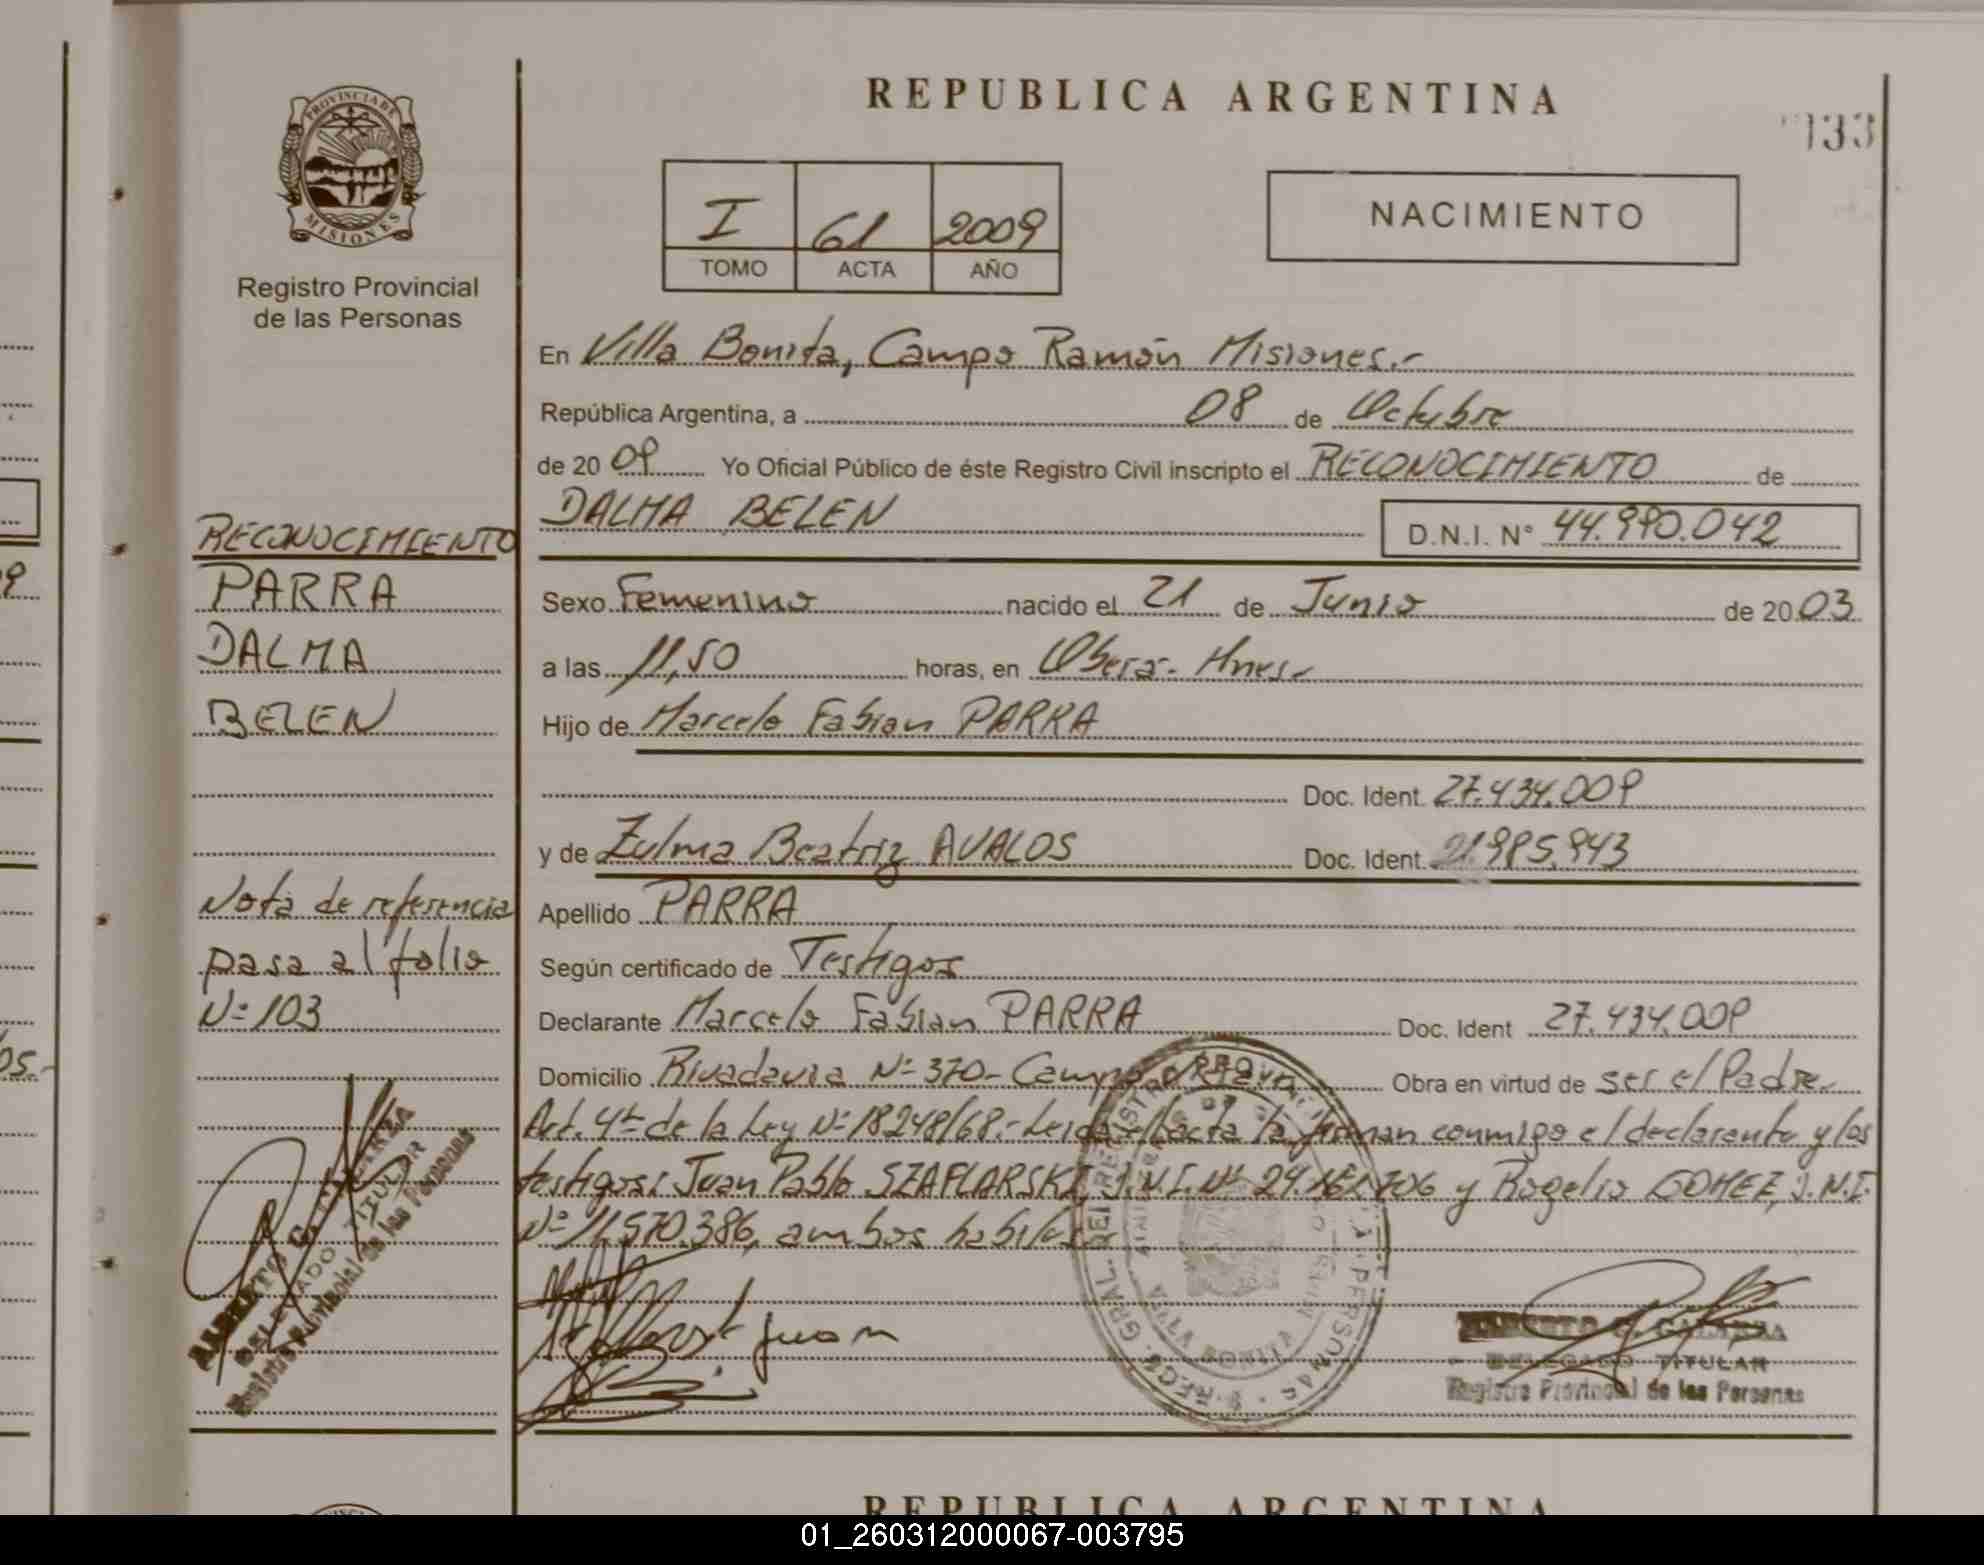 REPUBLICA ARGENTINA
133
PROVINCIA DE
MISIONES
Registro Provincial
de las Personas
I 61 2009
TOMO ACTA AÑO
NACIMIENTO
En Villa Bonita, Campo Ramón Misiones.-
República Argentina, a 08 de Octubre
de 2009 Yo Oficial Público de éste Registro Civil inscripto el RECONOCIMIENTO de
DALMA BELEN D.N.I. N° 44.990.042
RECONOCIMIENTO
PARRA
DALMA
BELEN
Sexo Femenino nacido el 21 de Junio de 2003
a las 11,50 horas, en Oberá- Mnes.-
Hijo de Marcelo Fabian PARRA
Doc. Ident. 27.434.009
y de Zulma Beatriz AVALOS Doc. Ident. 21.985.943
Nota de referencia
pasa al folio
N° 103
Apellido PARRA
Según certificado de Testigos
Declarante Marcelo Fabian PARRA Doc. Ident 27.434.009
Domicilio Rivadavia N° 370- Campo Obra en virtud de ser el Padre.
Art. 4° de la Ley N° 18248/68.- Leida el acta la firman conmigo el declarante y los
testigos: Juan Pablo SZAFLARSKI, D.N.I. N° y Rogelio GOMEZ, D.N.I.
N° 11.570.386, ambos habiles
Juan
DELEGADO TITULAR
Registro Provincial de las Personas
ALBERTO
DELEGADO TITULAR
Registro Provincial de las Personas
VILLA BONITA
REPUBLICA ARGENTINA
01_260312000067-003795